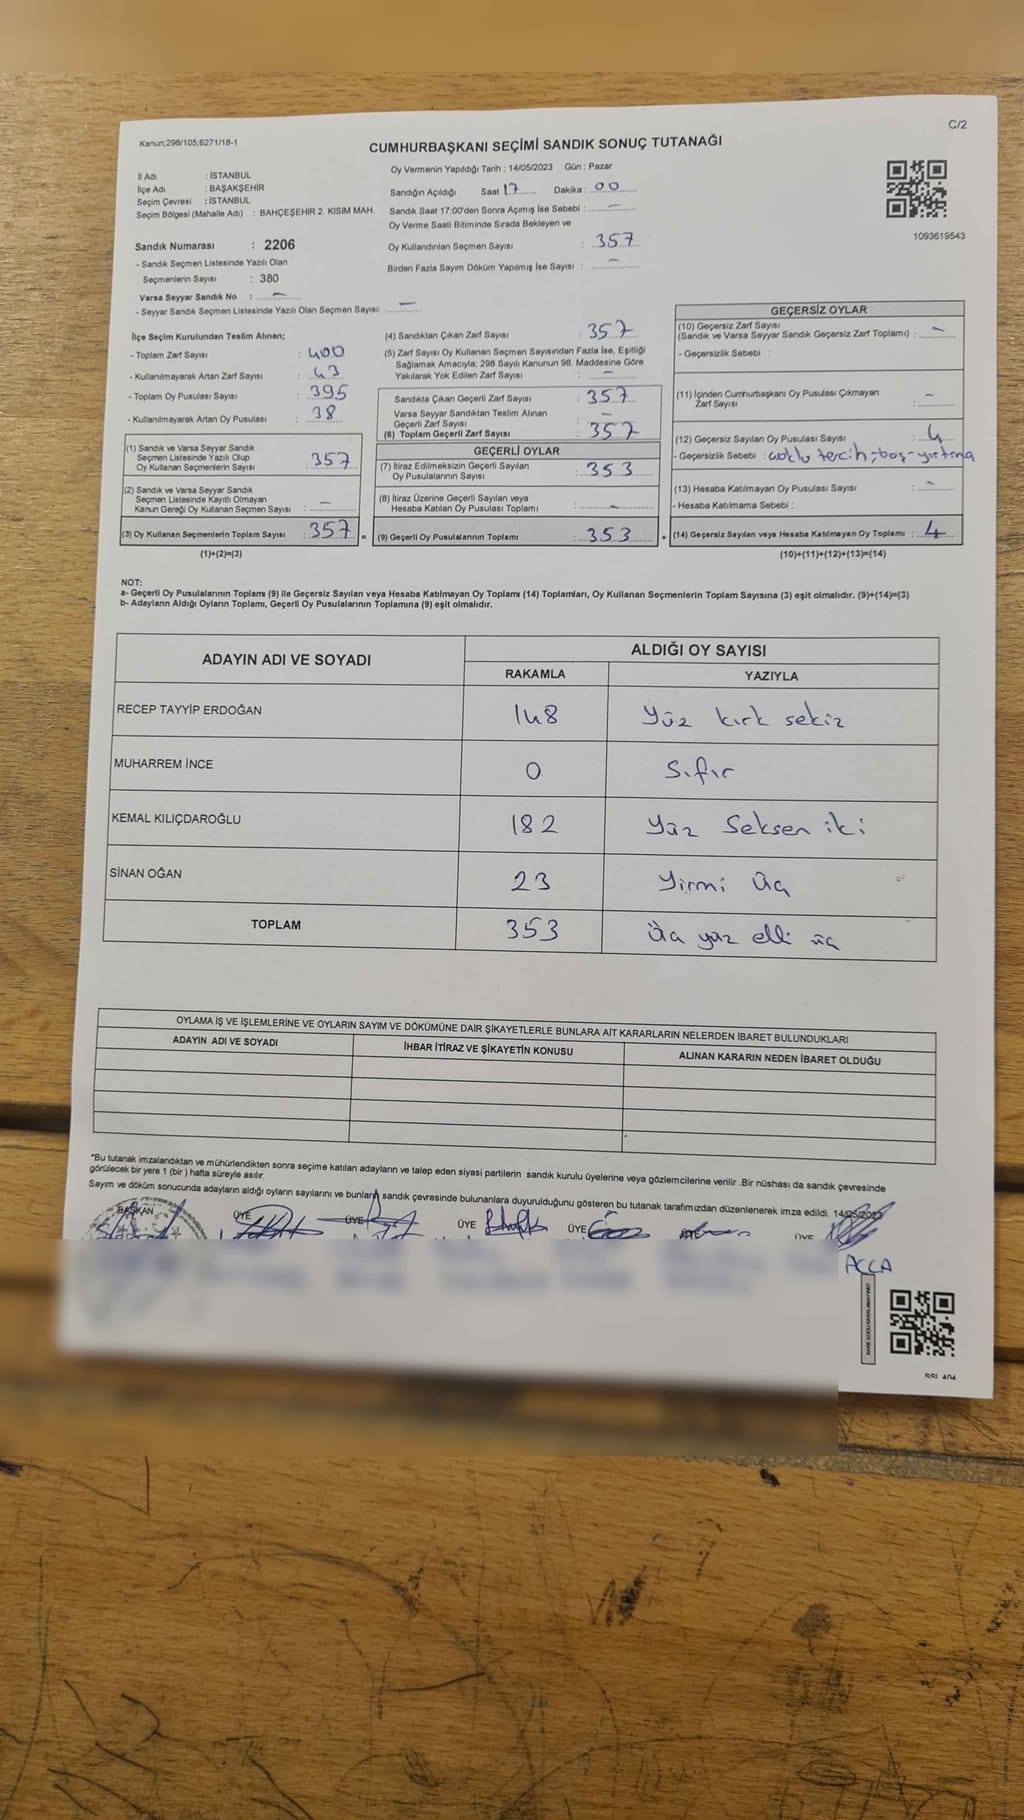 C/2
Kanun;298/105,6271/18-1
CUMHURBAŞKANI SEÇİMİ SANDIK SONUÇ TUTANAĞI
İl Adı : İSTANBUL
İlçe Adı : BAŞAKŞEHİR
Seçim Çevresi : İSTANBUL
Seçim Bölgesi (Mahalle Adı) : BAHÇEŞEHİR 2. KISIM MAH.
Sandık Numarası : 2206
- Sandık Seçmen Listesinde Yazılı Olan
Seçmenlerin Sayısı : 380
Varsa Seyyar Sandık No : –
- Seyyar Sandık Seçmen Listesinde Yazılı Olan Seçmen Sayısı: –
Oy Vermenin Yapıldığı Tarih : 14/05/2023 Gün : Pazar
Sandığın Açıldığı Saat 17 Dakika : 00
Sandık Saat 17:00'den Sonra Açımış İse Sebebi : –
Oy Verme Saati Bitiminde Sırada Bekleyen ve
Oy Kullandırılan Seçmen Sayısı : 357
Birden Fazla Sayım Döküm Yapılmış İse Sayısı : –
1093619543
İlçe Seçim Kurulundan Teslim Alınan;
- Toplam Zarf Sayısı : 400
- Kullanılmayarak Artan Zarf Sayısı : 43
- Toplam Oy Pusulası Sayısı : 395
- Kullanılmayarak Artan Oy Pusulası : 38
(1) Sandık ve Varsa Seyyar Sandık
Seçmen Listesinde Yazılı Olup
Oy Kullanan Seçmenlerin Sayısı : 357
(2) Sandık ve Varsa Seyyar Sandık
Seçmen Listesinde Kayıtlı Olmayan
Kanun Gereği Oy Kullanan Seçmen Sayısı : –
(3) Oy Kullanan Seçmenlerin Toplam Sayısı : 357 =
(1)+(2)=(3)
(4) Sandıktan Çıkan Zarf Sayısı : 357
(5) Zarf Sayısı Oy Kullanan Seçmen Sayısından Fazla İse, Eşitliği
Sağlamak Amacıyla; 298 Sayılı Kanunun 98. Maddesine Göre
Yakılarak Yok Edilen Zarf Sayısı : –
Sandıkta Çıkan Geçerli Zarf Sayısı : 357
Varsa Seyyar Sandıktan Teslim Alınan
Geçerli Zarf Sayısı : –
(6) Toplam Geçerli Zarf Sayısı : 357
GEÇERLİ OYLAR
(7) İtiraz Edilmeksizin Geçerli Sayılan
Oy Pusulalarının Sayısı : 353
(8) İtiraz Üzerine Geçerli Sayılan veya
Hesaba Katılan Oy Pusulası Toplamı : –
(9) Geçerli Oy Pusulalarının Toplamı : 353 +
GEÇERSİZ OYLAR
(10) Geçersiz Zarf Sayısı
(Sandık ve Varsa Seyyar Sandık Geçersiz Zarf Toplamı) : –
- Geçersizlik Sebebi :
(11) İçinden Cumhurbaşkanı Oy Pusulası Çıkmayan
Zarf Sayısı : –
(12) Geçersiz Sayılan Oy Pusulası Sayısı : 4
- Geçersizlik Sebebi : çoklu tercih, boş-yırtma
(13) Hesaba Katılmayan Oy Pusulası Sayısı : –
- Hesaba Katılmama Sebebi :
(14) Geçersiz Sayılan veya Hesaba Katılmayan Oy Toplamı : 4
(10)+(11)+(12)+(13)=(14)
NOT:
a- Geçerli Oy Pusulalarının Toplamı (9) ile Geçersiz Sayılan veya Hesaba Katılmayan Oy Toplamı (14) Toplamları, Oy Kullanan Seçmenlerin Toplam Sayısına (3) eşit olmalıdır. (9)+(14)=(3)
b- Adayların Aldığı Oyların Toplamı, Geçerli Oy Pusulalarının Toplamına (9) eşit olmalıdır.
ADAYIN ADI VE SOYADI ALDIĞI OY SAYISI
RAKAMLA YAZIYLA
RECEP TAYYİP ERDOĞAN 148 Yüz kırk sekiz
MUHARREM İNCE 0 Sıfır
KEMAL KILIÇDAROĞLU 182 Yüz Seksen iki
SİNAN OĞAN 23 Yirmi Üç
TOPLAM 353 Üç yüz elli üç
OYLAMA İŞ VE İŞLEMLERİNE VE OYLARIN SAYIM VE DÖKÜMÜNE DAİR ŞİKAYETLERLE BUNLARA AİT KARARLARIN NELERDEN İBARET BULUNDUKLARI
ADAYIN ADI VE SOYADI İHBAR İTİRAZ VE ŞİKAYETİN KONUSU ALINAN KARARIN NEDEN İBARET OLDUĞU
*Bu tutanak imzalandıktan ve mühürlendikten sonra seçime katılan adayların ve talep eden siyasi partilerin sandık kurulu üyelerine veya gözlemcilerine verilir .Bir nüshası da sandık çevresinde
görülecek bir yere 1 (bir ) hafta süreyle asılır.
Sayım ve döküm sonucunda adayların aldığı oyların sayılarını ve bunların sandık çevresinde bulunanlara duyurulduğunu gösteren bu tutanak tarafımızdan düzenlenerek imza edildi. 14/05/2023
BAŞKAN ÜYE ÜYE ÜYE ÜYE ÜYE ÜYE
ACCA